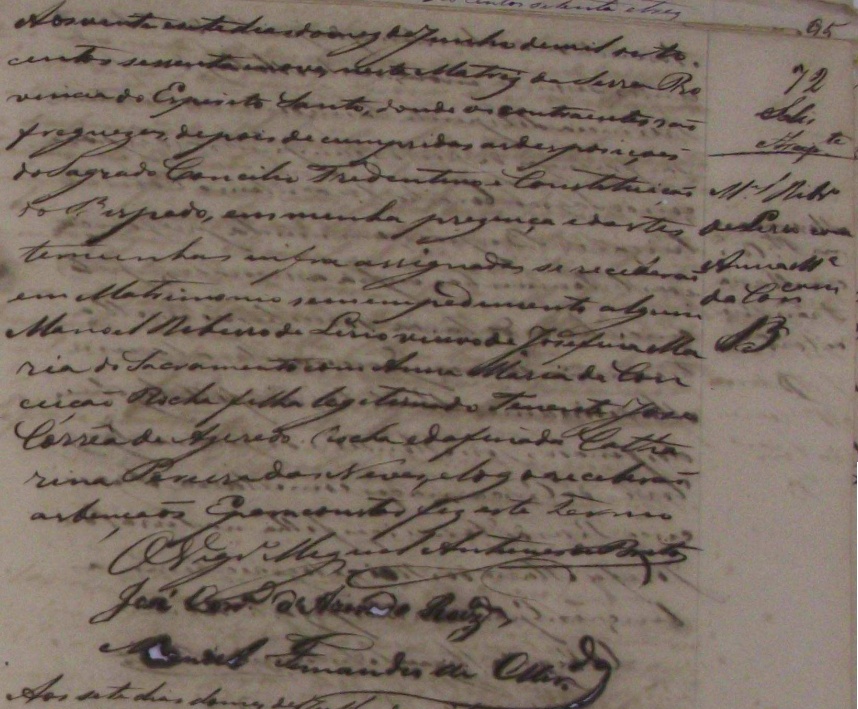 95
Aos vinte e sete dias do mez de Junho de mil oito
centos sessenta e nove, nesta Matriz da Serra Pro
vincia do Espirito Santo, donde os contraentes são
freguezes, depois de cumpridas as desposiçoens
do Sagrado Concilio Tredentino e Constituição
do Bispado, em minha prezença e das tes
temunhas infra assignadas se receberão
em Matrimonio sem empedimento algum
Manoel Ribeiro de Lirio viuvo de Josefina Ma
ria do Sacramento com Anna Maria da Con
ceição Rocha filha legitima do Tenente José
Corrêa de Azeredo Rocha e da finada Catha
rina Pereira das Neves, e logo receberão
as bençaõs. E para constar fiz este Termo
O Vigr.º Miguel Antunes de Brito
José Corr.ª de Azeredo Rocha
Manoel Fernandes de Oliv.ª
Aos sete dias do mez de
72
M.el Ribr.º
de Lirio com
Anna M.ª
da Con
B